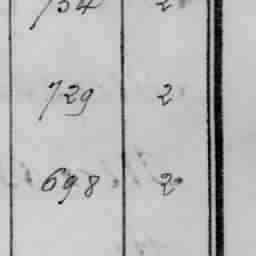 734 2
729 2
698 2